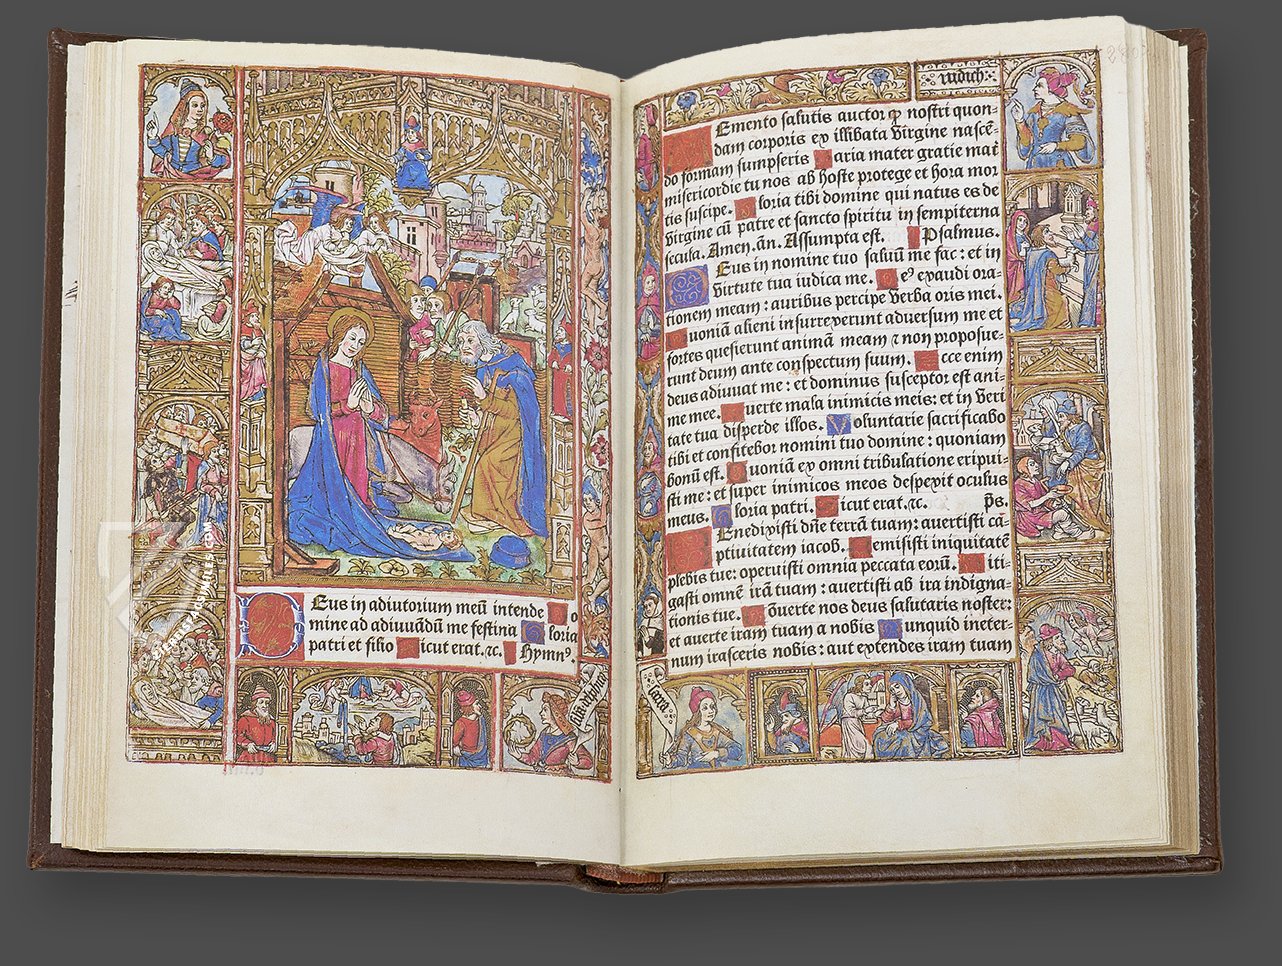 Eus in adiutorium meū intende
mine ad adiuvādum me festina
loria
patri et filio
icut erat. ⁊c.
Hymnꝰ.
iudich:
Emento salutis auctor
nostri quon-
dam corporis ex illibata virgine nascē-
do formam sumpseris
aria mater gratie mat
misericordie tu nos ab hoste protege et hora mor
tis suscipe.
loria tibi domine qui natus es de
virgine cū patre et sancto spiritu in sempiterna
secula. Amen. an̄. Assumpta est.
Psalmus.
Eus in nomine tuo salvū me fac: et in
virtute tua iudica me.
exaudi ora-
tionem meam: auribus percipe verba oris mei.
uoniā alieni insurrexerunt adversum me et
fortes quesierunt animā meam ⁊ non proposue-
runt deum ante conspectum suum.
cce enim
deus adiuvat me: et dominus susceptor est ani-
me mee.
uerte mala inimicis meis: et in veri
tate tua disperde illos.
Voluntarie sacrificabo
tibi et confitebor nomini tuo domine: quoniam
bonū est.
uoniā ex omni tribulatione eripui-
sti me: et super inimicos meos despexit oculus
meus.
loria patri.
icut erat. ⁊c.
p̄s.
Enedixisti dn̄e terrā tuam: avertisti ca-
ptivitatem iacob.
emisisti iniquitatē
plebis tue: operuisti omnia peccata eorū.
iti-
gasti omnē irā tuam: avertisti ab ira indigna-
tionis tue.
ōverte nos deus salutaris noster:
et averte iram tuam a nobis
unquid in eter-
num irasceris nobis: aut extendes iram tuam